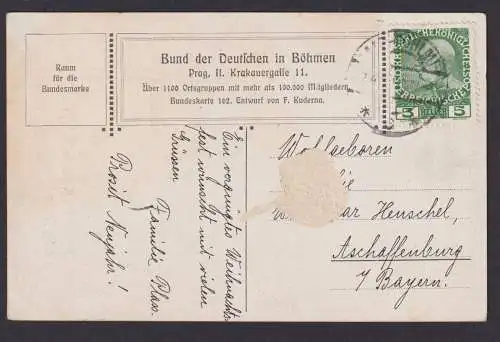 Raum
für die
Bundesmarke
Bund der Deutſchen in Böhmen
Prag, II. Krakauergaſſe 11.
Über 1100 Ortsgruppen mit mehr als 100.000 Mitgliedern
Bundeskarte 102. Entwurf von F. Kuderna.
5 5
Ein vergnügtes Weihnachts-
fest wünscht mit vielen
Grüssen
Familie Plax.
Prosit Neujahr!
Wohlgeboren
Henschel,
Aschaffenburg
Bayern.